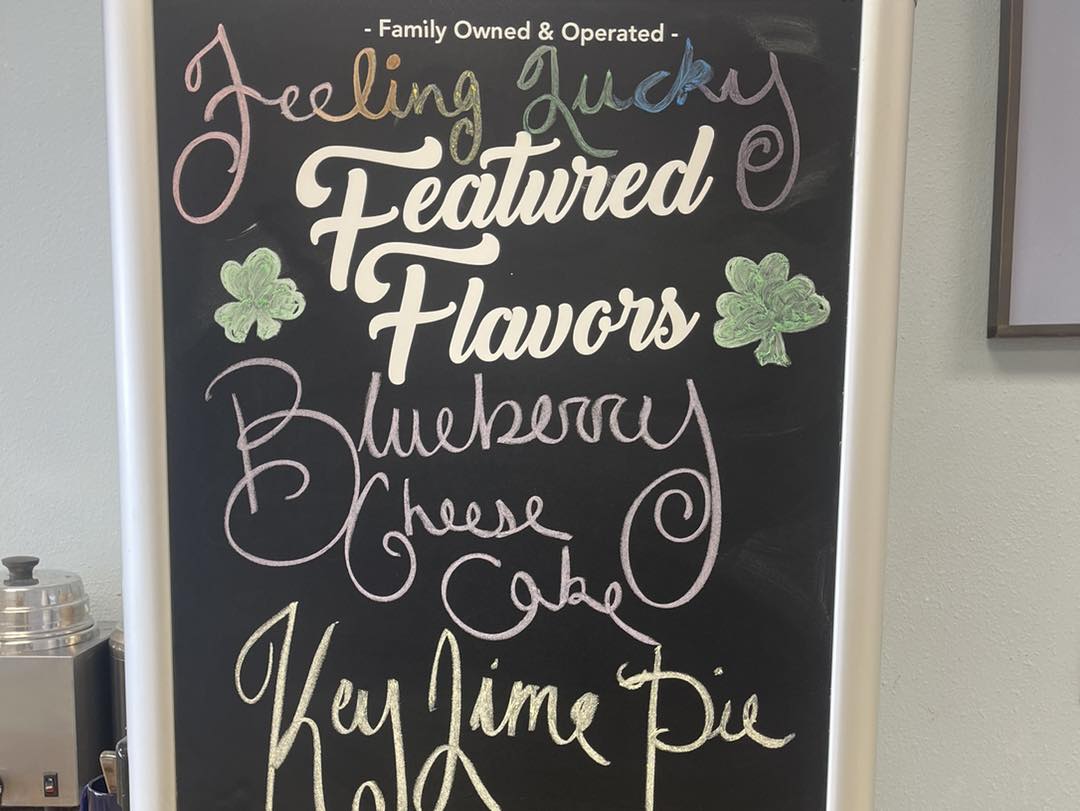 - Family Owned & Operated -
Feeling Lucky
Featured
Flavors
Blueberry
Cheese
Cake
Key Lime Pie